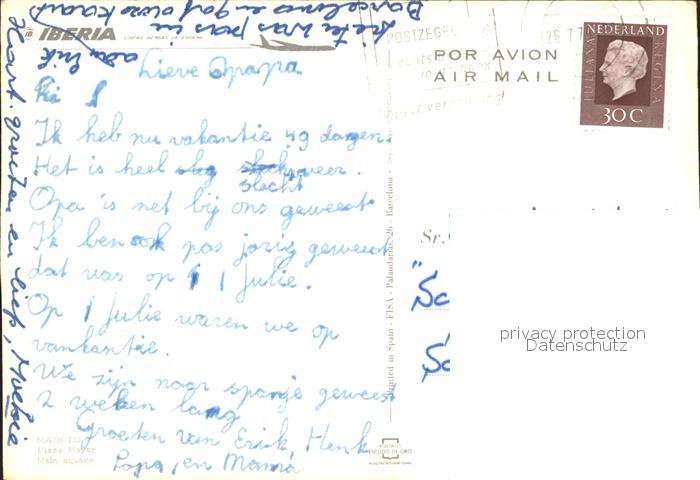 IBERIA
LINEAS AEREAS DE ESPAÑA
Lieve Opapa
Ik heb nu vakantie 49 dagen.
Het is heel slecht weer.
Opa is net bij ons geweest
Ik ben ook pas jarig geweest
dat was op 1 Julie.
Op 1 Julie waren we op
vankantie.
We zijn naar spanje geweest
2 weken lang
Groeten van Erik, Henk
Papa, en Mama
Hart. groeten en liefs,
was pas in
Barcelona en gaf deze kaart
MADRID
Plaza Mayor
Main square
Printed in Spain - FISA - Palaudarias, 26 - Barcelona
POSTALES
ESCUDO DE ORO
POSTZEGEL
26 7 7
POR AVION
AIR MAIL
NEDERLAND
JULIANA
REGINA
30 C
Sr.
"Sc
Sc
privacy protection
Datenschutz